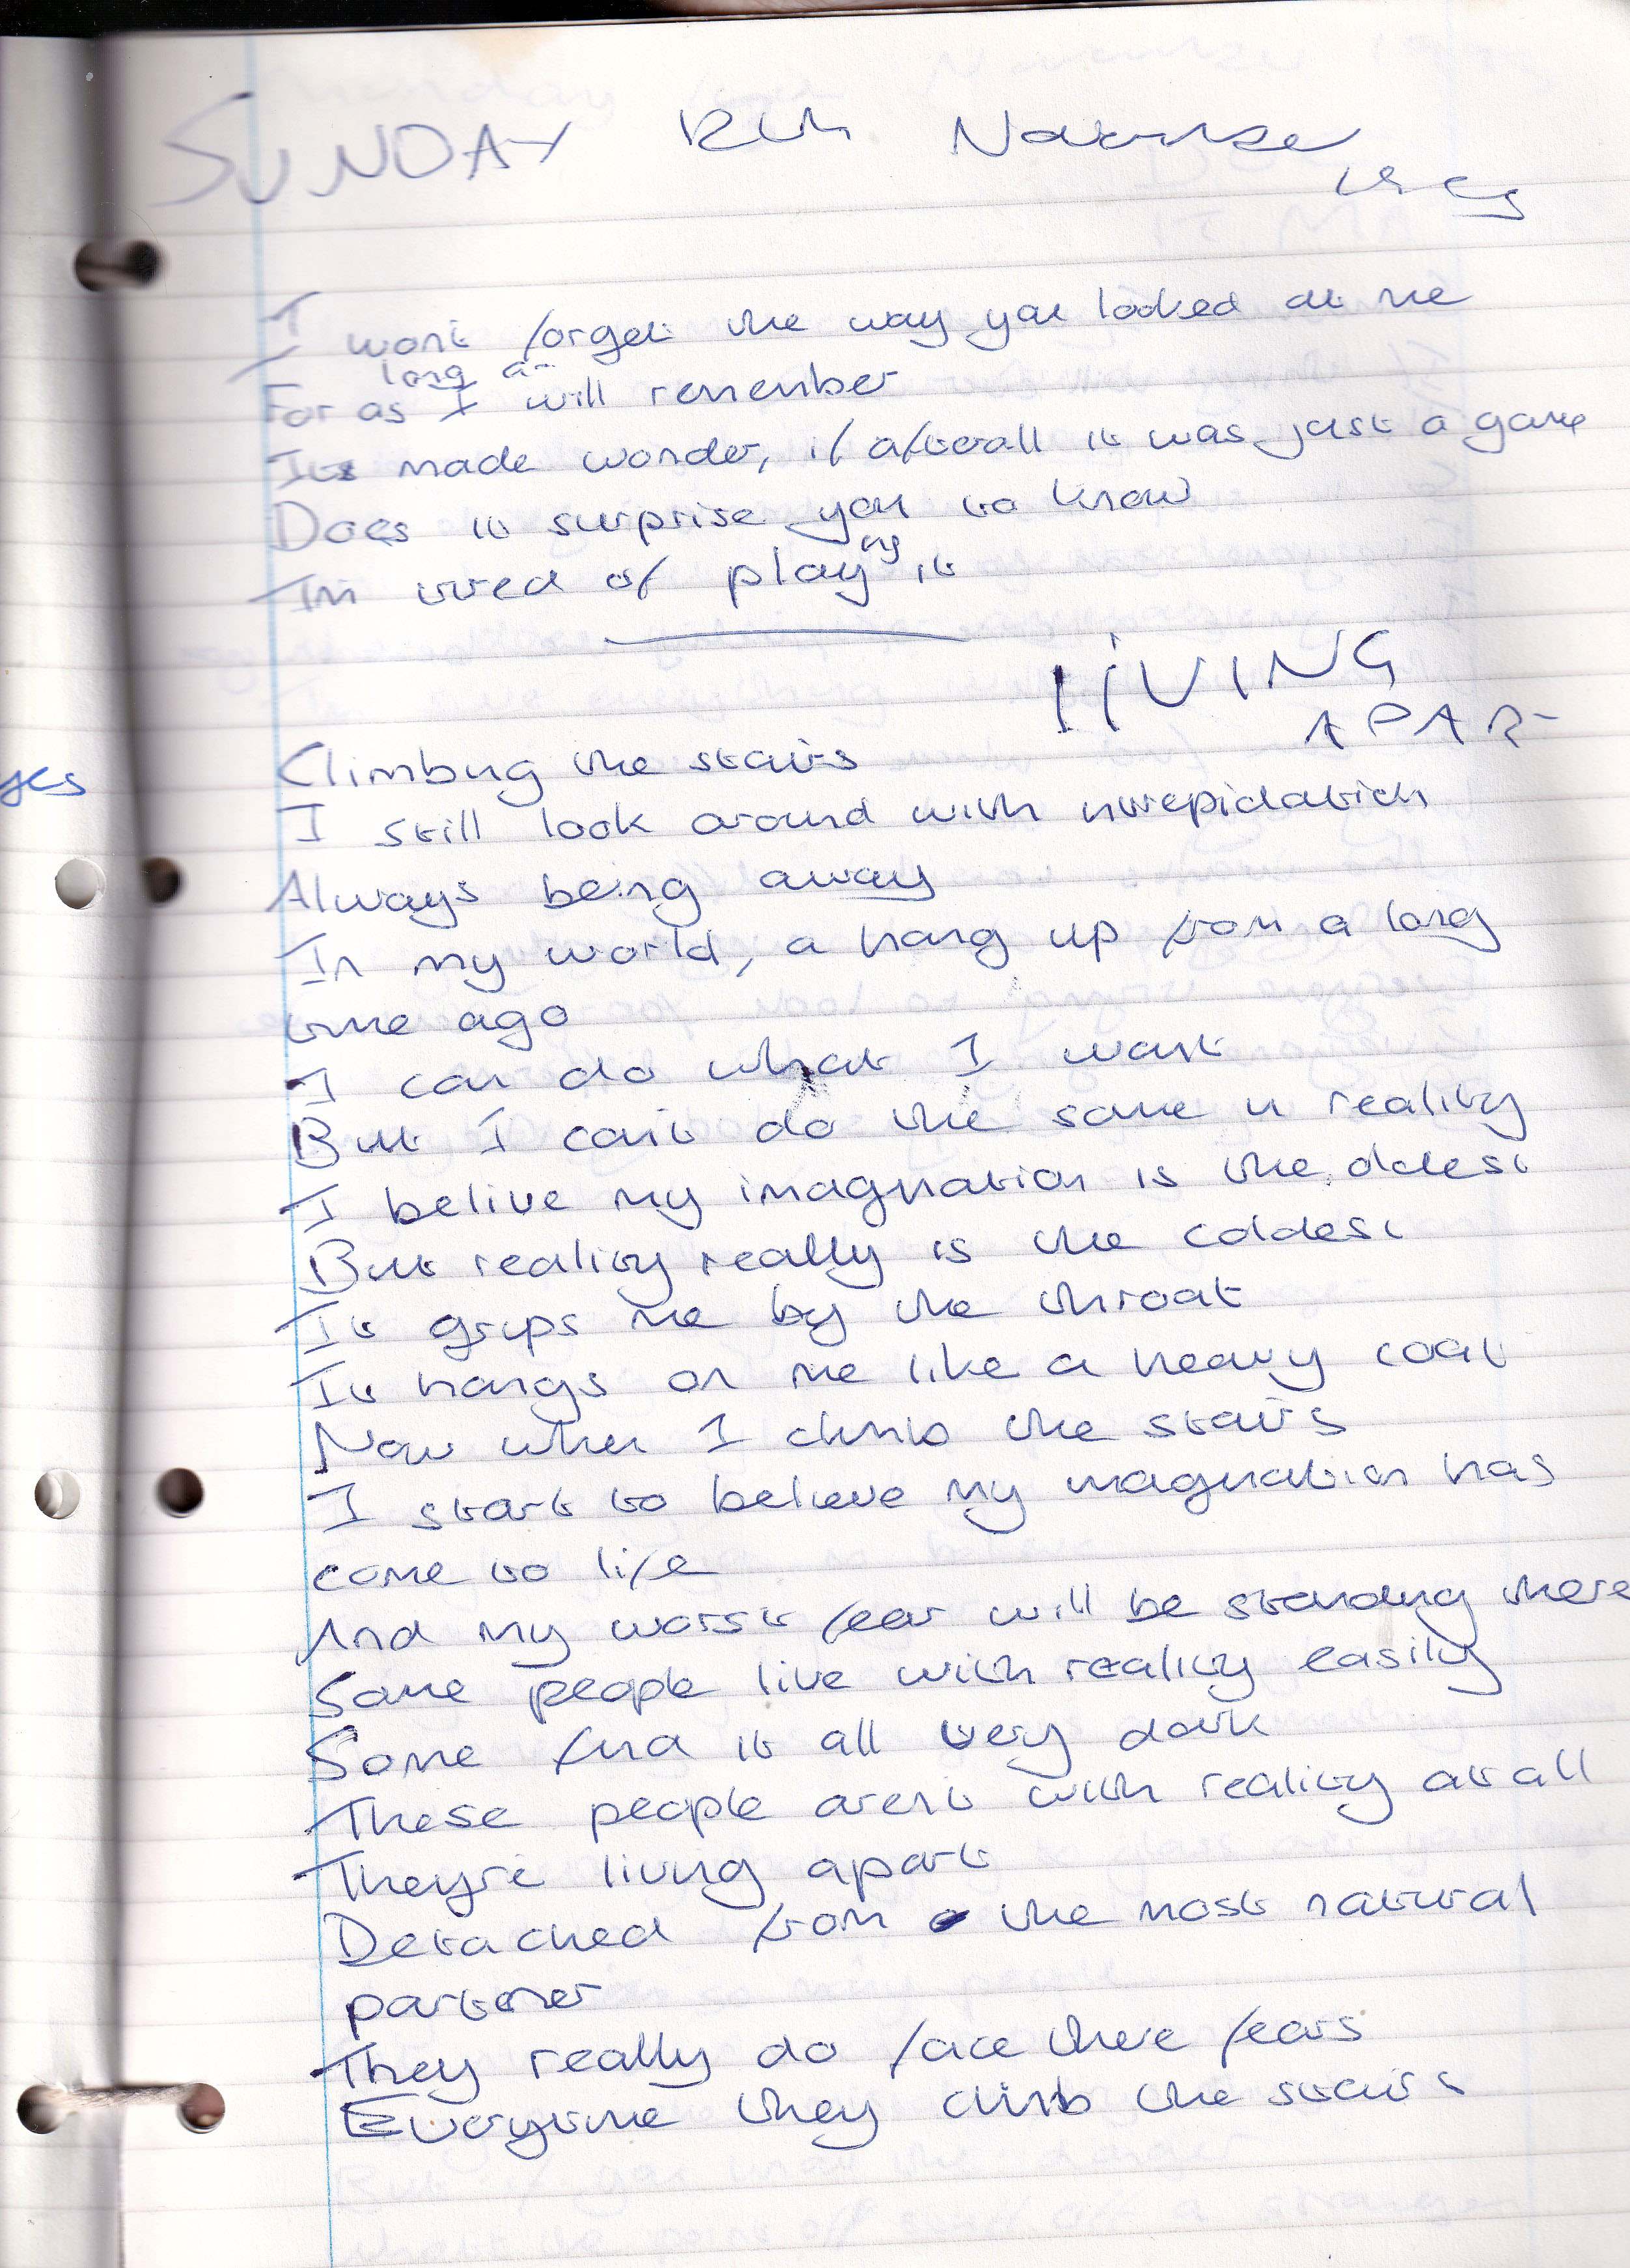 SUNDAY 12th November
1989
I wont forget the way you looked at me
long as
For as I will remember
Its made wonder, if afterall it was just a game
Does it surprise you to know
I'm tired of playing it
LIVING
APART
Climbing the stairs
I still look around with intrepidation
Always being away
In my world, a hang up from a long
time ago
I can do what I want
But I can't do the same in reality
I belive my imagination is the oldest
But reality really is the coldest
It grips me by the throat
It hangs on me like a heavy coat
Now when I climb the stairs
I start to believe my imagination has
come to life
And my worst fear will be standing there
Some people live with reality easily
Some find it all very dark
These people aren't with reality at all
They're living apart
Detached from the most natural
partner
They really do face there fears
Everytime they climb the stairs
yes